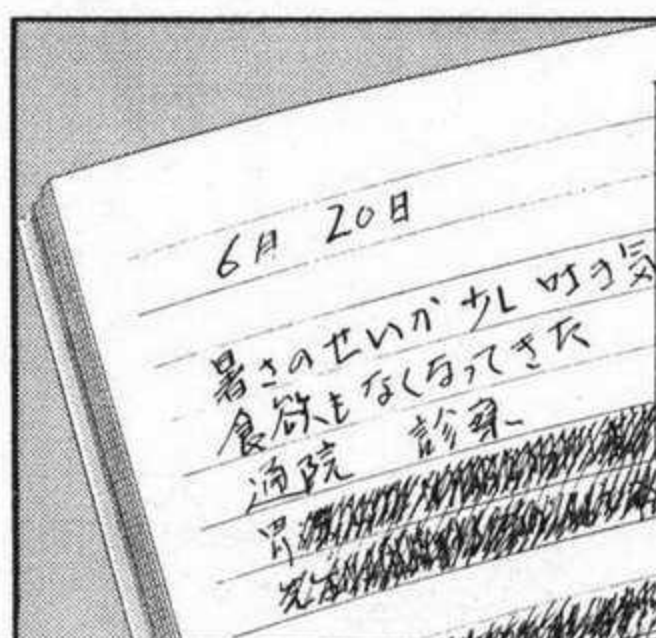 6月 20日
暑さのせいか 少し 吐き気
食欲もなくなってきた
通院 診察
胃